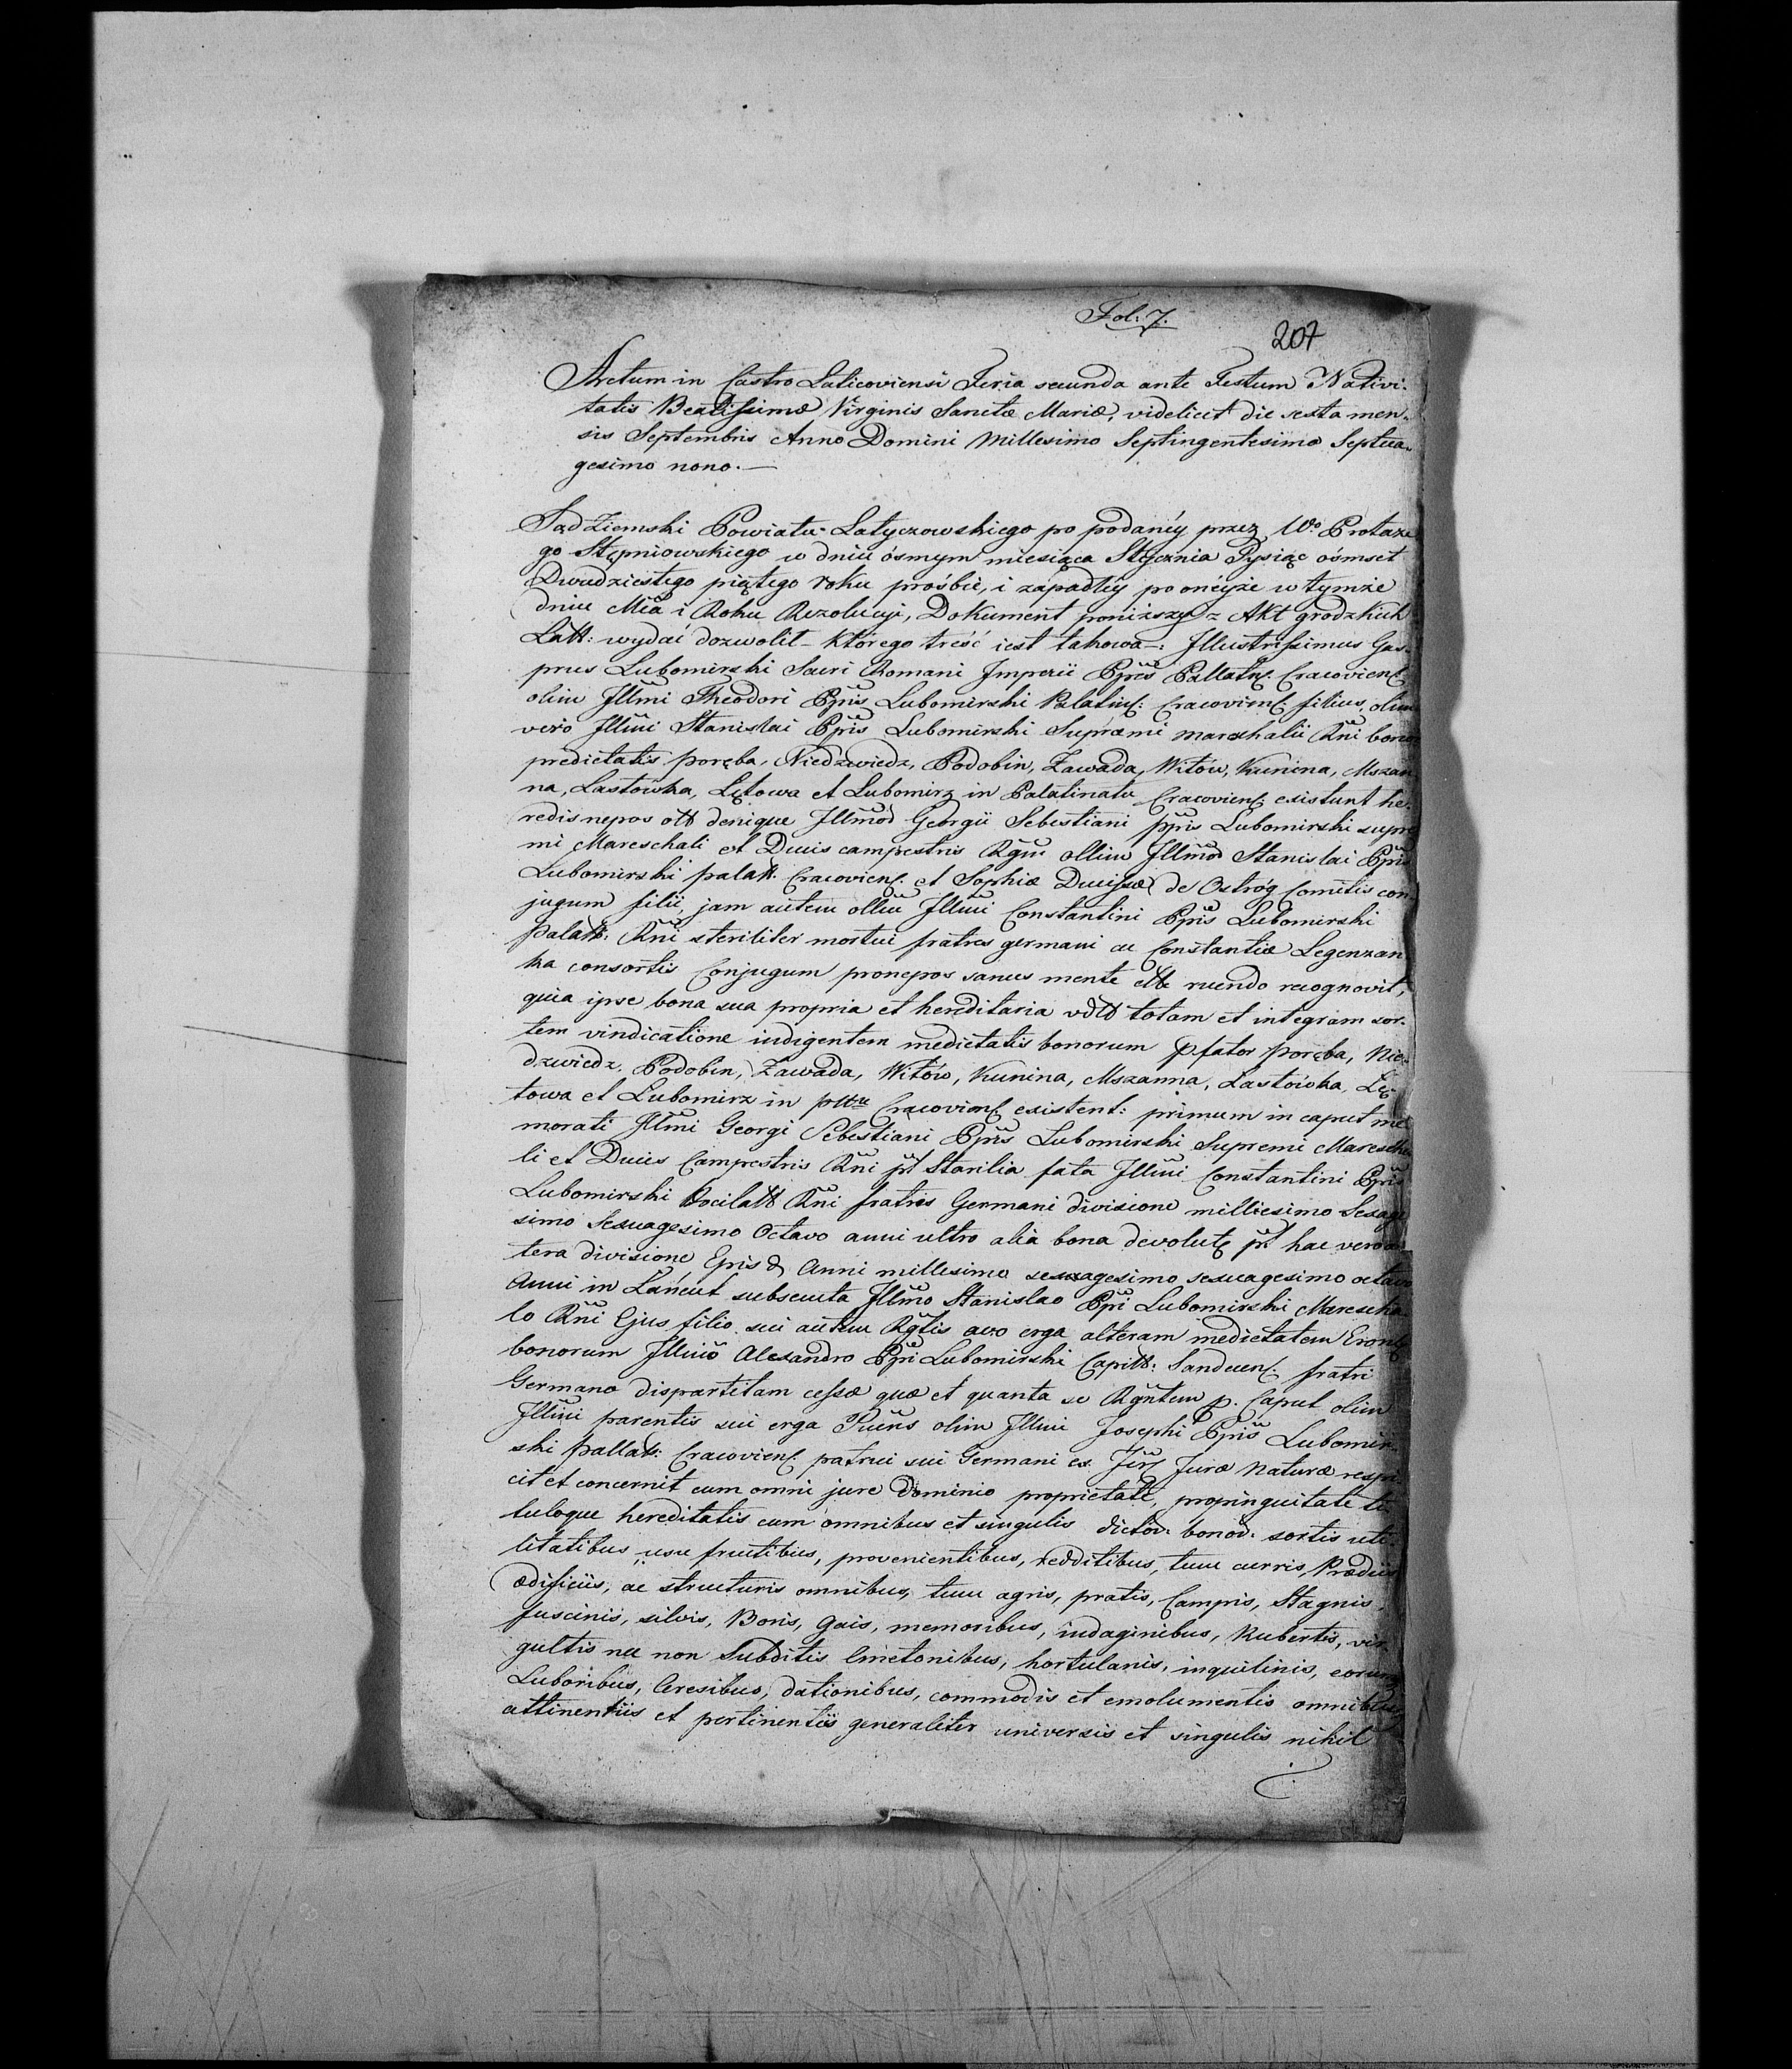 Fol: 7.
207
Actum in Castro Laticoviensi Feria secunda ante Festum Nativi-
tatis Beatissimæ Virginis Sanctæ Mariæ, videlicet die sexta men-
sis Septembris Anno Domini Millesimo Septingentesimo Septua-
gesimo nono.—
Sąd Ziemski Powiatu Latyczowskiego po podanéy przez Wo Protaze
go Stępniowskiego w dniu ósmym miesiąca Stycznia Tysiąc óśmset
Dwudziestego piątego roku prośbie, i zapadłéy po onéyże w tymże
dniu Mca i Roku Rezolucyi, Dokument poniższy z Akt grodzkich
Latt: wydać dozwolił – którego treść iest takowa –: Illustrissimus Gas-
prus Lubomirski Sacri Romani Imperii Ppris Pallatn: Cracoviens:
olim Illmi Theodori Ppris Lubomirski Palatins: Cracoviens: filius, olim
vero Illmi Stanislai Ppris Lubomirski Supremi mareschalii Rni bonor
predictatis poręba, Niedzwiedz, Podobin, Zawada, Witów, Kunina, Mszan
na, Łastówka, Łętowa et Lubomirz in Palatinatu Cracoviens: existunt he-
redis nepos ott denique Illmod Georgii Sebestiani ppris Lubomirski supre
mi Mareschali et Ducis campestris Rgni ollim Illmod Stanislai Ppris
Lubomirski palatt. Cracoviens: et Sophiæ Ducissæ de Ostróg Comitis con
jugum filii, jam autem ollim Illmi Constantini Ppris Lubomirski
Palatt: Rni steriliter mortui fratres germani ac Constantiæ Legenzan
ka consortis Conjugum pronepos sanus mente ettc ruendo recognovit,
quia ipse bona sua propria et hereditaria vdtt totam et integram sor-
tem vindicatione indigentem medietatis bonorum pfator poręba, Nie-
dzwiedz, Podobin, Zawada, Witów, Kunina, Mszanna, Łastówka, Łę-
towa et Lubomirz in pttu Cracoviens: existent: primum in caput me
morati Illmi Georgi Sebestiani Ppris Lubomirski Supremi Marescha
li et Ducis Campestris Rni pt Starilia fata Illmi Constantini Ppris
Lubomirski Pocilatt Rni fratres Germani divisione milliesimo Sexage
simo Sexuagesimo Octavo anni ultro alia bona devolute pt hac vero al
tera divisione Epris & Anni millesimo sexuagesimo sexuagesimo octavo
Anni in Łańcut subsecuta Illmo Stanislao Ppri Lubomirski Marescha
lo Rni Ejus filio sui autem Rgtis avo erga alteram medietatem Eron:
bonorum Illmo Alexandro Ppri Lubomirski Capitt: Sanduens: fratri
Germano dispartitam cessæ quæ et quanta se Rgntem p. Caput olim
Illmi parentis sui erga Pueris olim Illmi Josephi Ppris Lubomir-
ski pallatt: Cracoviens: patrui sui Germani ex Jure Juræ Naturæ respi
cit et concernit cum omni jure Dominio proprietate, propinquitate ti
tuloque hereditatis cum omnibus et singulis dictor: bonor: sortis uti-
litatibus usu fructibus, provenientibus, redditibus, tum curris, Prædiis
ædificiis, ac structuris omnibus, tum agris, pratis, Campis, Stagnis,
fuscinis, silvis, Boris, Gais, memoribus, indaginibus, Rubertis, vir
gultis nec non Subditis Cmetonibus, hortulanis, inquilinis, eorum
Laboribus, Censibus, dationibus, commodis et emolumentis omnibus
attinentiis et pertinentiis generaliter universis et singulis nihil